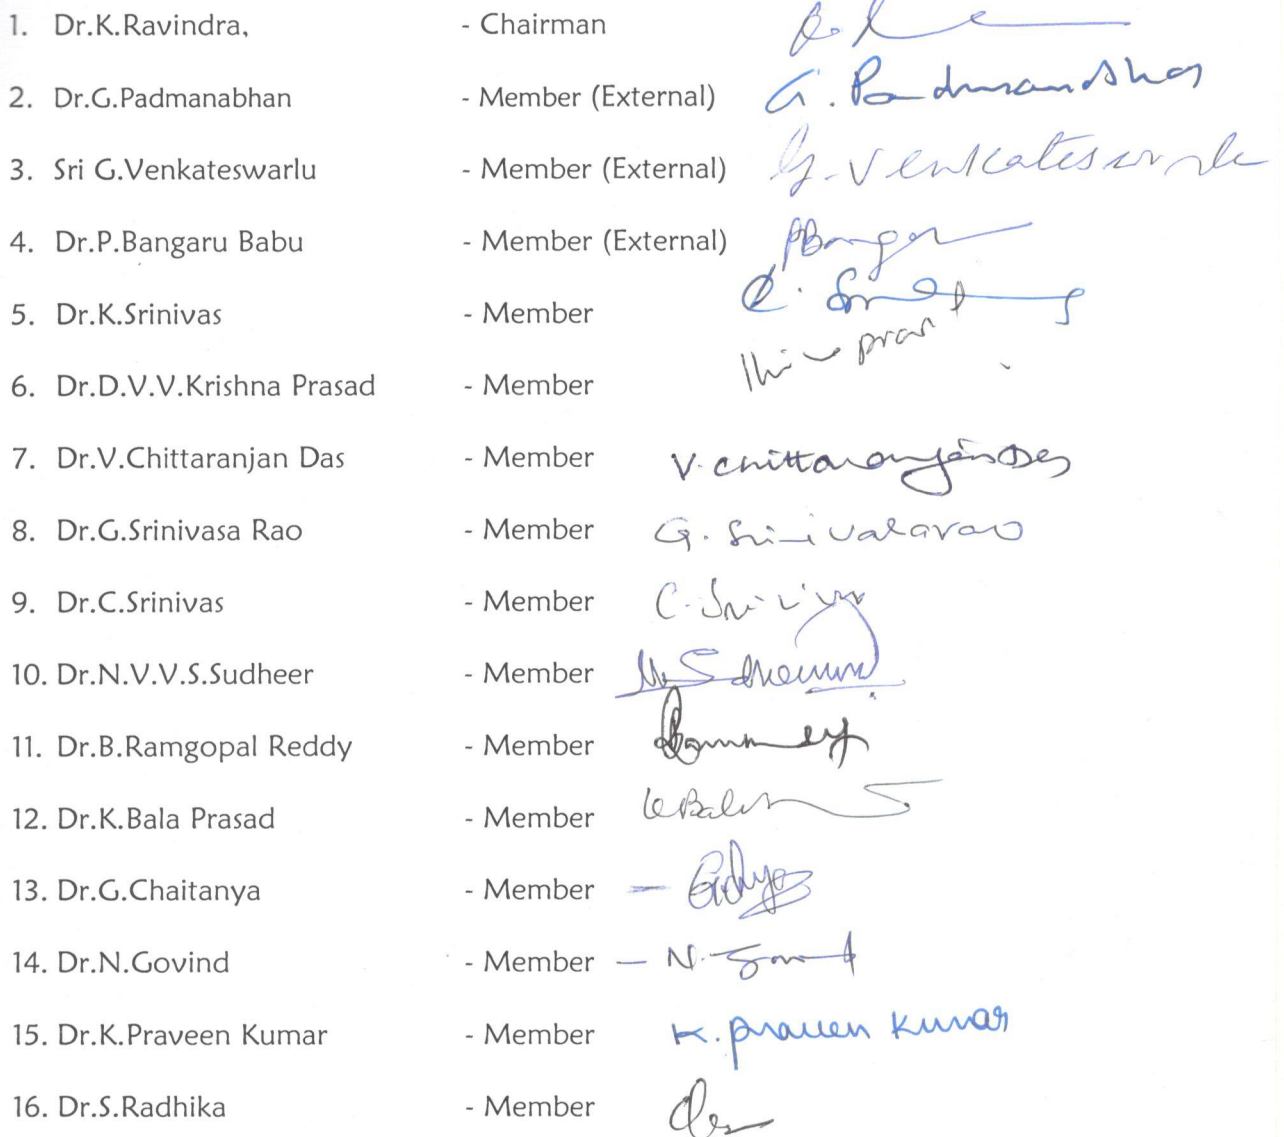 1. Dr.K.Ravindra, - Chairman
2. Dr.G.Padmanabhan - Member (External) G. Padmanabhan
3. Sri G.Venkateswarlu - Member (External) G. Venkateswarlu
4. Dr.P.Bangaru Babu - Member (External) PBangar
5. Dr.K.Srinivas - Member K.
6. Dr.D.V.V.Krishna Prasad - Member
7. Dr.V.Chittaranjan Das - Member V. Chittaranjan Das
8. Dr.G.Srinivasa Rao - Member G. Srinivasarao
9. Dr.C.Srinivas - Member C. Srinivas
10. Dr.N.V.V.S.Sudheer - Member
11. Dr.B.Ramgopal Reddy - Member
12. Dr.K.Bala Prasad - Member
13. Dr.G.Chaitanya - Member -
14. Dr.N.Govind - Member - N.
15. Dr.K.Praveen Kumar - Member K. Praveen Kumar
16. Dr.S.Radhika - Member